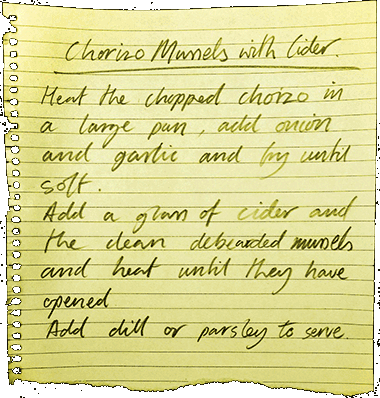 Chorizo Mussels with Cider.
Heat the chopped chorizo in
a large pan, add onion
and garlic and fry until
soft.
Add a glass of cider and
the clean debearded mussels
and heat until they have
opened
Add dill or parsley to serve.